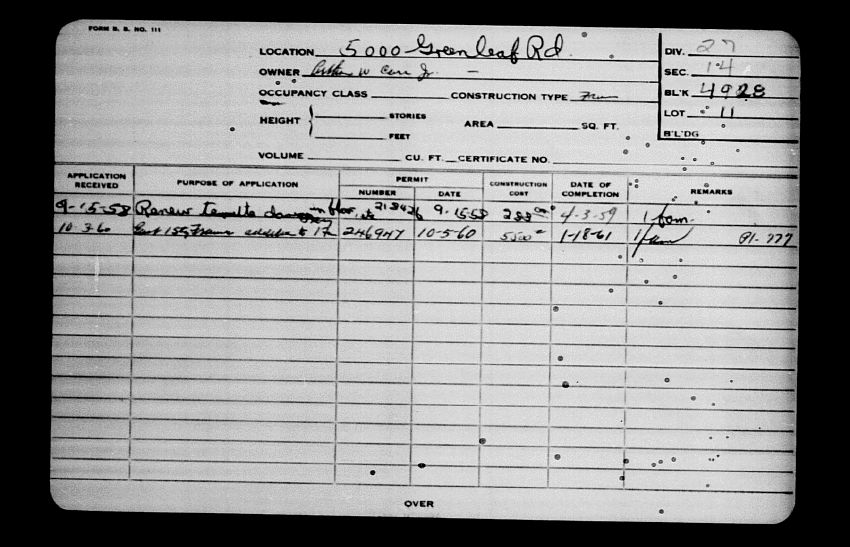 FORM B. B. NO. 111
LOCATION 5000 Greenleaf Rd.
OWNER Arthur W Carr Jr. —
OCCUPANCY CLASS CONSTRUCTION TYPE Fra
HEIGHT STORIES
FEET
AREA SQ. FT.
VOLUME CU. FT. CERTIFICATE NO.
DIV. 27
SEC. 14
BL'K 4928
LOT 11
B'L'DG
APPLICATION RECEIVED PURPOSE OF APPLICATION PERMIT NUMBER DATE CONSTRUCTION COST DATE OF COMPLETION REMARKS
9-15-58 Renew termite damage in floor, etc 218426 9-15-58 288 4-3-59 1 fam.
10-3-60 1 sty Frame addition to 246947 10-5-60 5500 1-18-61 1 fam 91-777
OVER